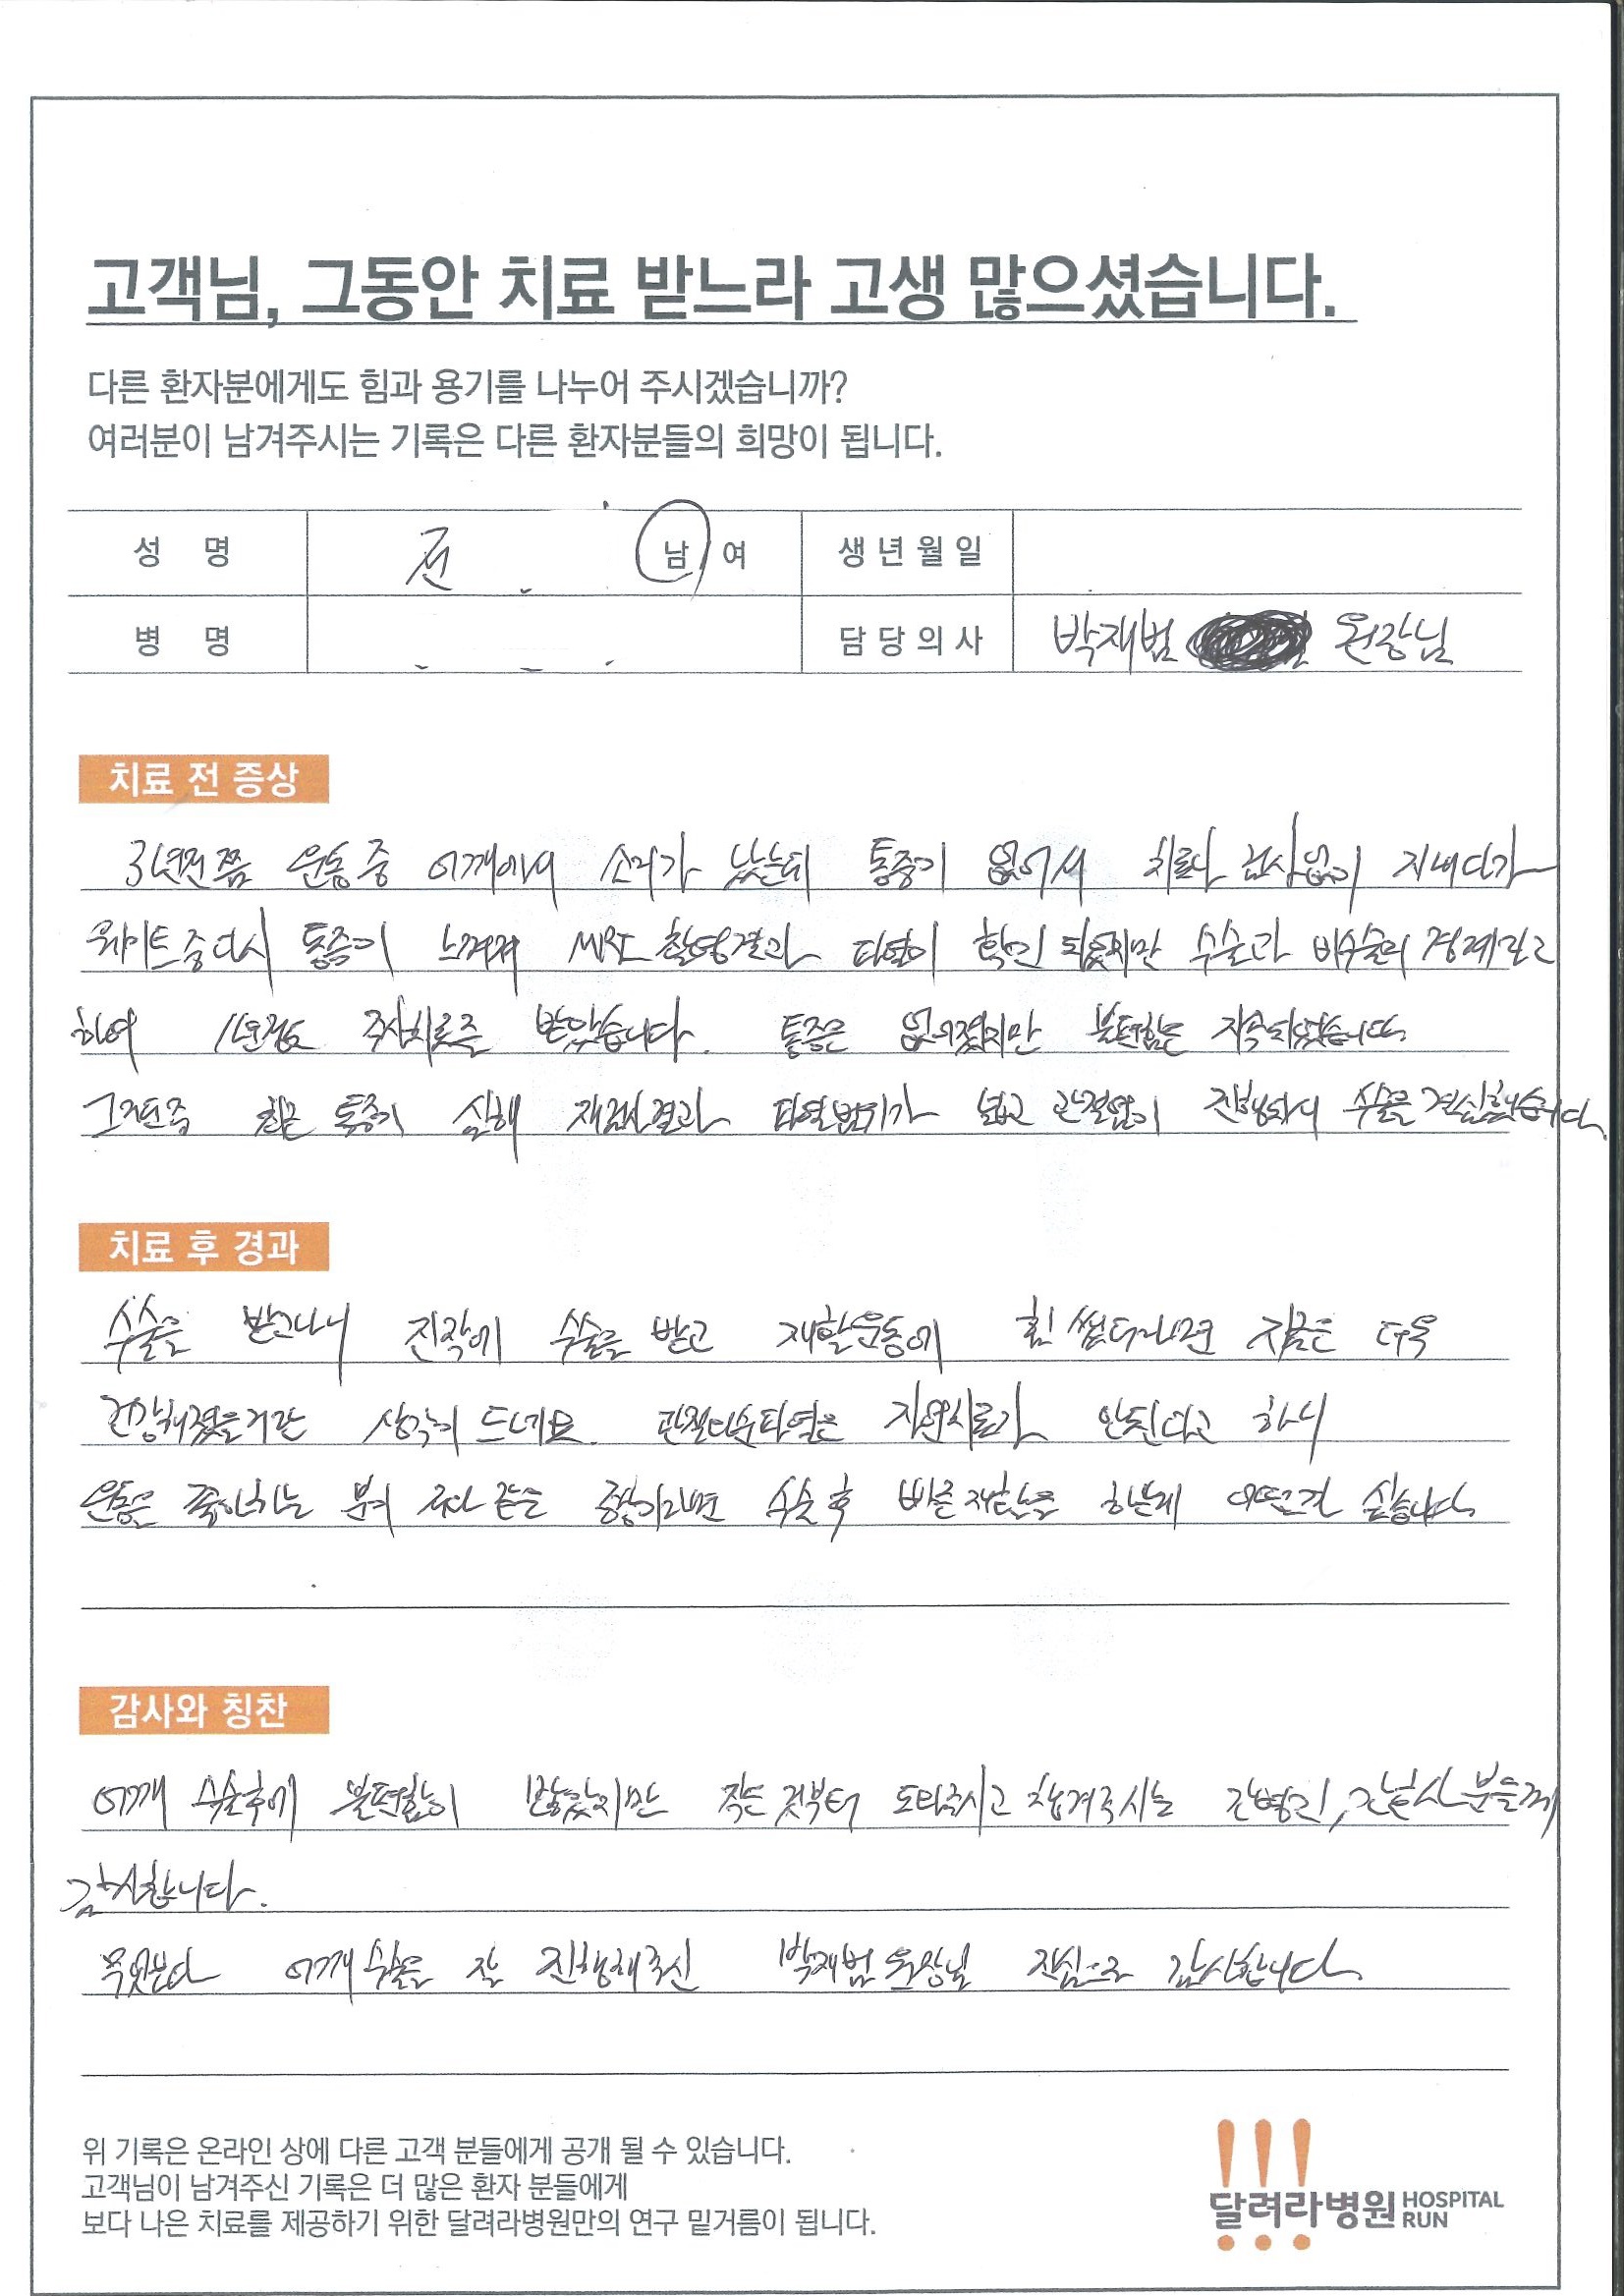 고객님, 그동안 치료 받느라 고생 많으셨습니다.
다른 환자분에게도 힘과 용기를 나누어 주시겠습니까?
여러분이 남겨주시는 기록은 다른 환자분들의 희망이 됩니다.
성 명 전 남/여 생년월일
병 명 담당의사 박재범 원장님
치료 전 증상
3년전쯤 운동중 어깨에서 소리가 났는데 통증이 없어서 치료나 검사없이 지내다가
웨이트중 다시 통증이 느껴져 MRI 촬영결과 파열이 확인 되었지만 수술과 비수술의 경계라고
하여 1년정도 주사치료를 받았습니다. 통증은 없어졌지만 불편함은 지속되었습니다.
그러던중 최근 통증이 심해 재검사결과 파열범위가 넓고 관절염이 진행되어 수술을 결심했습니다.
치료 후 경과
수술을 받고나니 진작에 수술을 받고 재활운동에 힘썼더라면 지금은 더욱
건강해졌을거란 생각이 드네요. 관절와순파열은 자연치료가 안된다고 하니
운동을 좋아하는 분이 저와 같은 증상이라면 수술 후 빠른 재활을 하는게 어떨까 싶습니다.
감사와 칭찬
어깨 수술후에 불편함이 많았지만 작은 것부터 도와주시고 챙겨주시는 간병인, 간호사 분들께
감사합니다.
무엇보다 어깨수술을 잘 진행해주신 박재범 원장님 진심으로 감사합니다.
위 기록은 온라인 상에 다른 고객 분들에게 공개 될 수 있습니다.
고객님이 남겨주신 기록은 더 많은 환자 분들에게
보다 나은 치료를 제공하기 위한 달려라병원만의 연구 밑거름이 됩니다.
달려라병원 HOSPITAL RUN